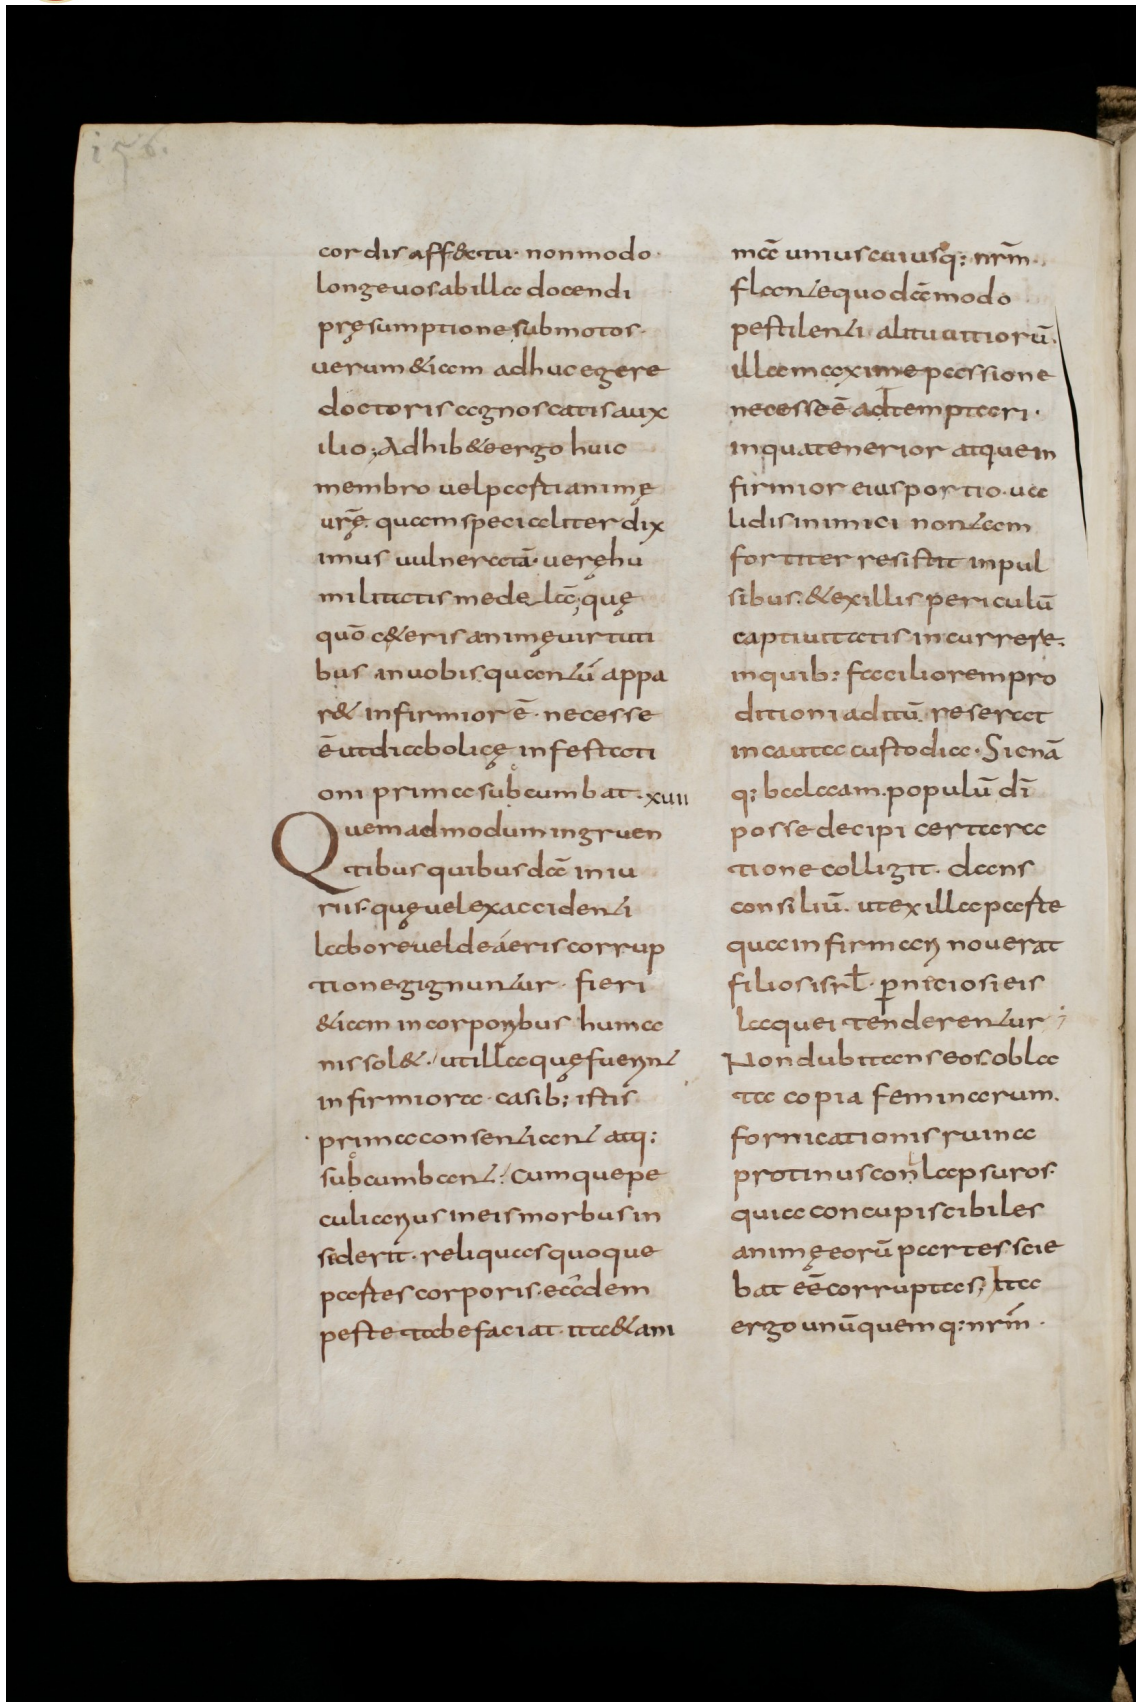 156.
cordis aff&ctu· non modo·
longeuos ab illa docendi
pręsumptione submotos·
uerum &iam adhuc egere
doctoris agnoscatis aux
ilio; Adhib&e ergo huic
membro uel parti animę
urę̄· quam specialiter dix
imus uulneratā· uerę hu
militatis medelā; quę
quō c&eris animę uirtuti
bus in uobis quantū appa
r& infirmior ē· necesse
ē ut diabolicę infestati
oni prima subcumbat· xuii
Quemadmodum ingruen
tibus quibusdā iniu
riis· quę uel ex accidenti
labore uel de aeris corrup
tione gignuntur· fieri
&iam in corporibus huma
nis sol&· ut illa quę fuerint
infirmiora· casib; istis
prima consentiant atq;
subcumbant; Cumque pe
culiarius in eis morbus in
siderit· reliquas quoque
partes corporis· eādem
peste tabefaciat· ita &ani
mā uniuscuiusq; nrm̄·
flante quodāmodo
pestilenti alitu uitiorū·
illa maxime passione
necesse ē adtemptari·
in qua tenerior atque in
firmior eius portio· ua
lidis inimici non tam
fortiter resistit inpul
sibus; &ex illis periculū
captiuitatis incurrere·
in quib; faciliorem pro
ditioni aditū reserat
incauta custodia· Sic nā
q; balaam· populū dī
posse decipi certa ra
tione colligit· dans
consiliū· ut ex illa parte
qua infirmari nouerat
filios isrl̄· perniciosi eis
laquei tenderentur;
Non dubitans eos oblа
ta copia feminarum·
fornicationis ruina
protinus conlapsuros·
quia concupiscibiles
animę eorū partes scie
bat eē corruptas; Ita
ergo unūquemq; nrm̄·